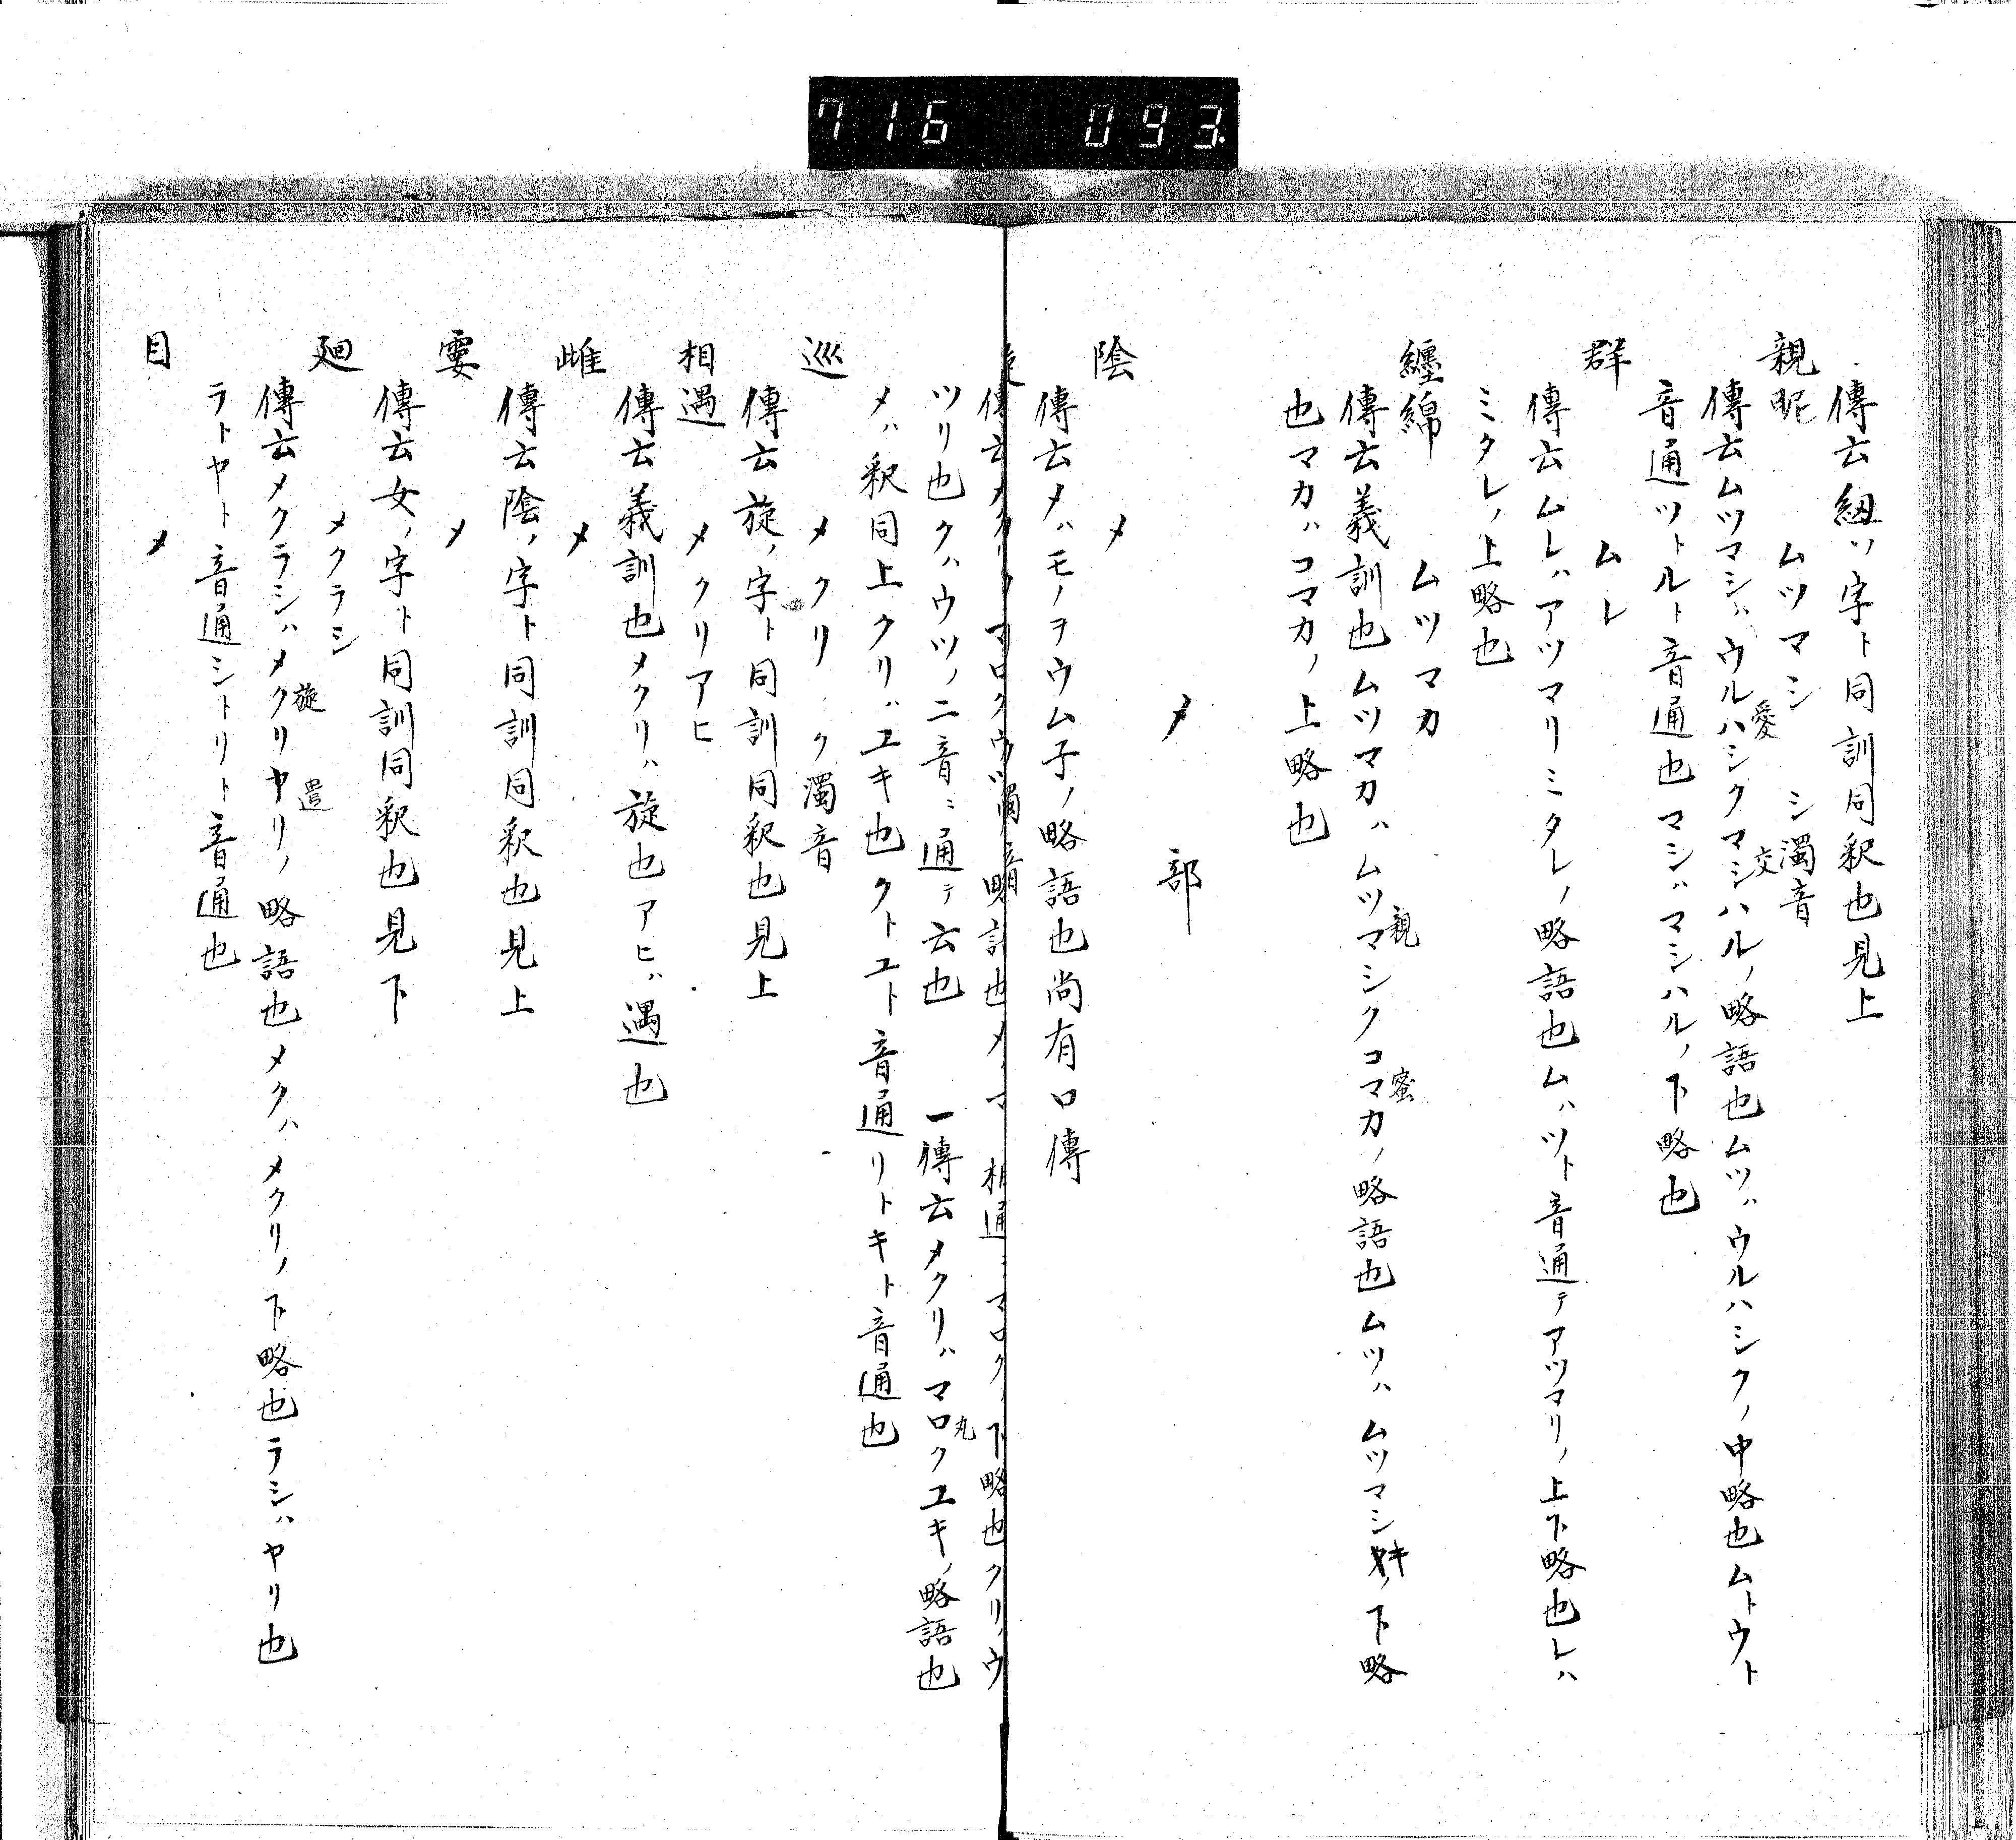 716 093
傳云紐ノ字ト同訓同釈也見上
親昵 ムツマシ シ濁音
傳云ムツマシハウルハシク愛マシハル交ノ略語也ムツハウルハシクノ中略也ムトウト
音通ツトルト音通也マシハマシハルノ下略也
群 ムレ
傳云ムレハアツマリミタレノ略語也ムハツト音通テアツマリノ上下略也レハ
ミタレノ上略也
纏綿 ムツマカ
傳云義訓也ムツマカハムツマシク親コマカ蜜ノ略語也ムツハムツマシキノ下略
也マカハコマカノ上略也
メ部
陰 メ
傳云メハモノヲウム子ノ略語也尚有口傳
相通 マロクノ下略也クリハウ
ツリ也クハウツノ二音ニ通テ云也 一傳云メクリハマロク丸ユキノ略語也
メハ釈同上クリハユキ也クトユト音通リトキト音通也
巡 メクリ ク濁音
傳云旋ノ字ト同訓同釈也見上
相遇 メクリアヒ
傳云義訓也メクリハ旋也アヒハ遇也
雌 メ
傳云陰ノ字ト同訓同釈也見上
メ
傳云女ノ字ト同訓同釈也見下
廻 メクラシ
傳云メクラシハメクリ旋ヤリ遣ノ略語也メクハメクリノ下略也ラシハヤリ也
ラトヤト音通シトリト音通也
目 メ